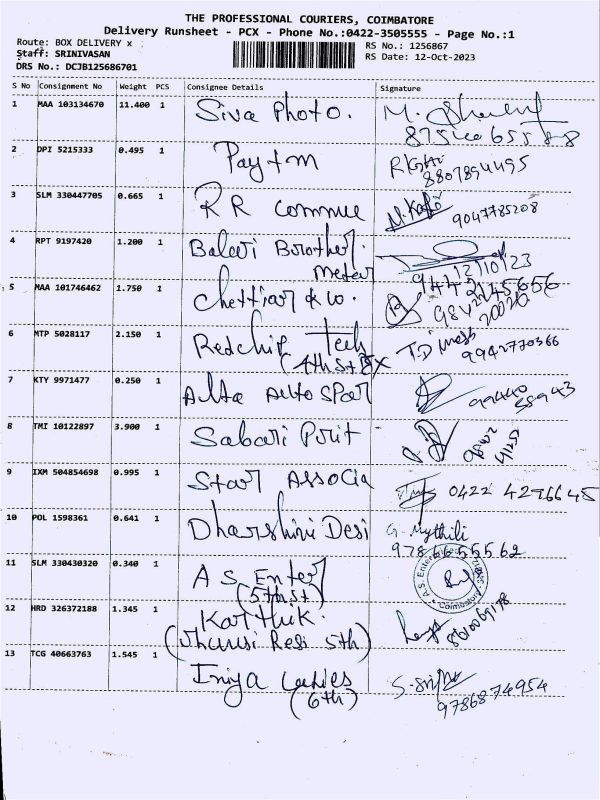 THE PROFESSIONAL COURIERS, COIMBATORE
Delivery Runsheet - PCX - Phone No.:0422-3505555 - Page No.:1
Route: BOX DELIVERY x
Staff: SRINIVASAN
DRS No.: DCJB125686701
RS No.: 1256867
RS Date: 12-Oct-2023
S No Consignment No Weight PCS Consignee Details Signature
1 MAA 103134670 11.400 1 Siva Photo.
2 DPI 5215333 0.495 1 Paytm
8807894495
3 SLM 330447705 0.665 1 RR Commue
9047785208
4 RPT 9197420 1.200 1 Balari Brother.
Meter
12/10/23
9442145656
5 MAA 101746462 1.750 1 Chettiar & co.
6 MTP 5028117 2.150 1 Redchip Tech
(4th St Ex
9942770366
7 KTY 9971477 0.250 1 Alta Auto Spar
99440
8 TMI 10122897 3.900 1 Sabari Prit
9 IXM 504854698 0.995 1 Star Associa
0422 4276645
10 POL 1598361 0.641 1 Dharshini Desi
G. Mythili
9786655562
11 SLM 330430320 0.340 1 A S Enter
(5th St)
A.S. Enter
Coimbatore
12 HRD 326372188 1.345 1 Karthik.
(Jhansi Resi 5th)
13 TCG 40663763 1.545 1 Iniya Ladies
(6th)
9786874954